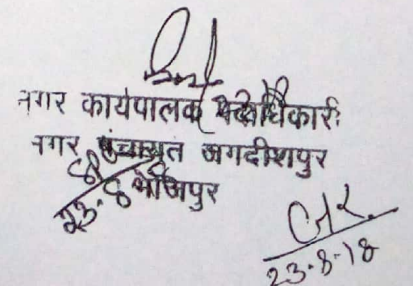 नगर कार्यपालक पदाधिकारी
नगर पंचायत जगदीशपुर
भोजपुर
23.8
23-8-18